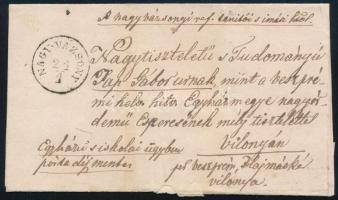 A nagyvázsonyi ref. tanítói s imái hból.
NAGY-VÁZSONY
Nagytiszteletű s Tudományú
Pap Gábor urnak, mint a veszpré
mi helv. hitv. Egyházmegye nagyér
demű Esperesének mély tisztelettel
Vilonyán
Egyházi s iskolai ügyben
porta díj mentes
pr Veszprém, Hajmáskér
Vilonya.